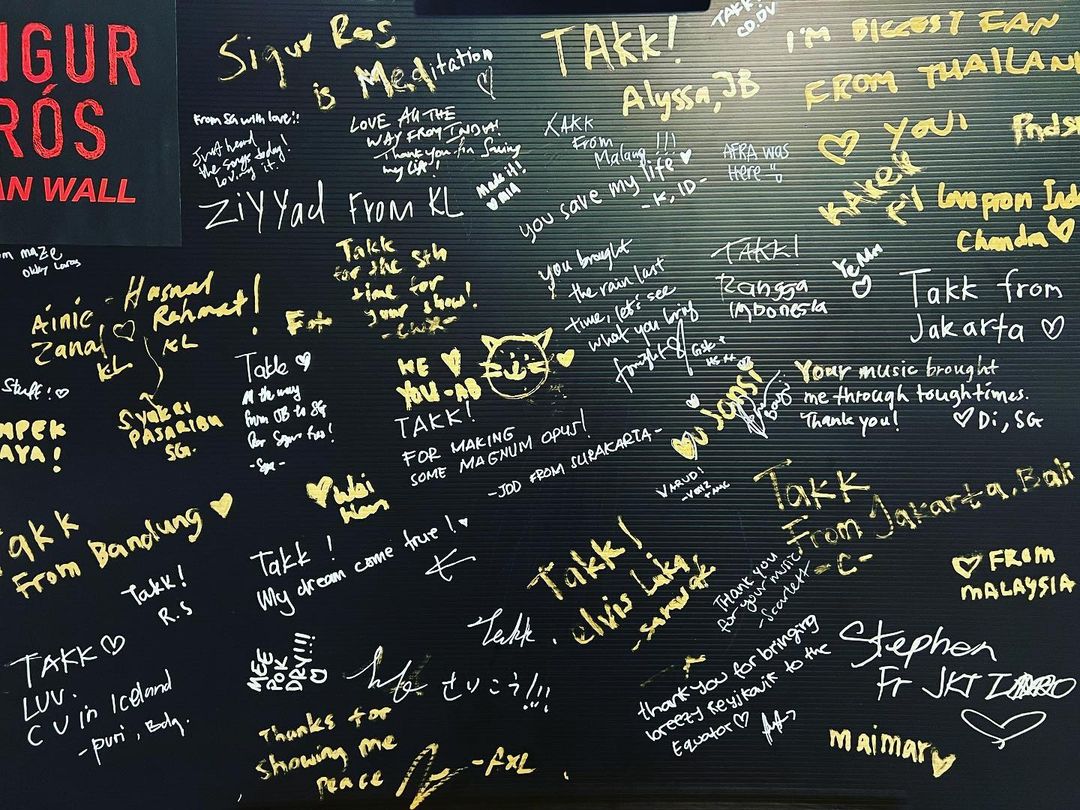 SIGUR
RÓS
FAN WALL
Sigur Ros
is Meditation
TAKK!
Alyssa, JB
TAKK!
I'M BIGGEST FAN
FROM THAILAND
YOU!
From SG with love!!
Just heard
the songs today!
Loving it!
LOVE ALL THE
WAY FROM INDIA!
Thank you for saving
my life!
Made it!!
TAKK
From
Malang!!!
you save my life
-K, ID-
AFRA WAS
Here
Ziyyad From KL
Love from Indo
Chandra
Takk
for the 5th
time for
your show!
you brought
the rain last
time, let's see
what you bring
tonight
TAKK!
Rangga
Indonesia
Takk from
Jakarta
Ainie
Zanal
KL
Hasnul
Rahmat!
KL
Syukri
PASARIBU
SG.
Stuff!
WE
YOU -AB
TAKK!
FOR MAKING
SOME MAGNUM OPUS!
-JDD FROM SURAKARTA-
Jonsi
Your music brought
me through tough times.
Thank you!
Di, SG
Takk
All the way
from JB to SG
for Sigur Ros!
Wai
Takk
From Bandung
Takk!
R.S
Takk!
My dream come true!
Takk
From Jakarta, Bali
-C-
Takk!
elvis Laka
sarawak
Thank you
for your music
-Scarlett
FROM
MALAYSIA
TAKK
LUV.
C U in Iceland
-puri, Bdg.
MEE
POK
DRY!!!
Takk.
さいこう!!!
Thank you for bringing
breezy Reyjkavik to the
Equator
Stephen
Fr JKT
Thanks for
showing me
Peace
-fxL
maimar